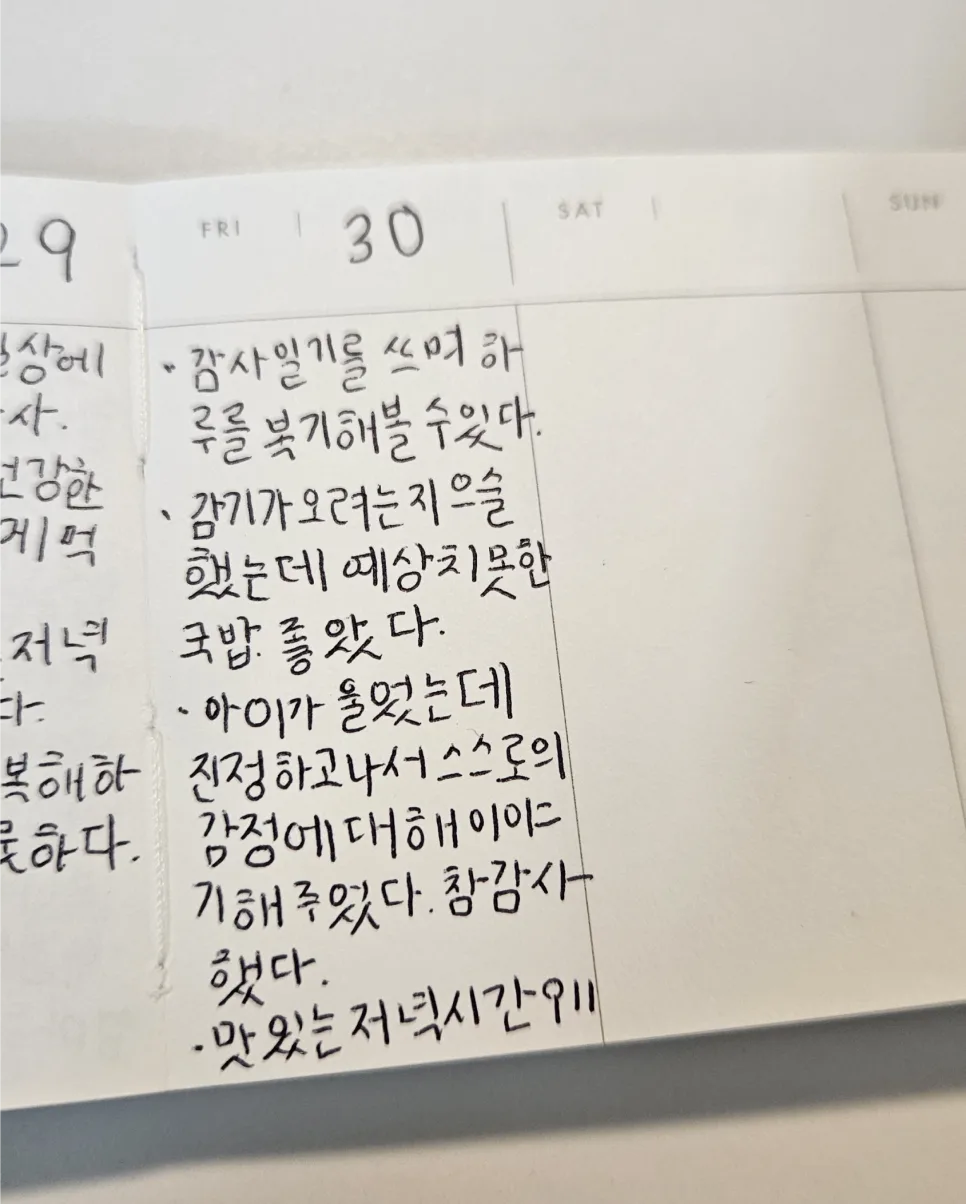 29
FRI 30
SAT
SUN
상에
사.
건강한
게 먹
저녁
다.
복해하
하다.
· 감사일기를 쓰며 하
루를 복기해볼 수있다.
· 감기가 오려는지 으슬
했는데 예상치못한
국밥. 좋았다.
· 아이가 울었는데
진정하고나서 스스로의
감정에 대해
기해주었다. 참감사
했다.
· 맛있는 저녁시간